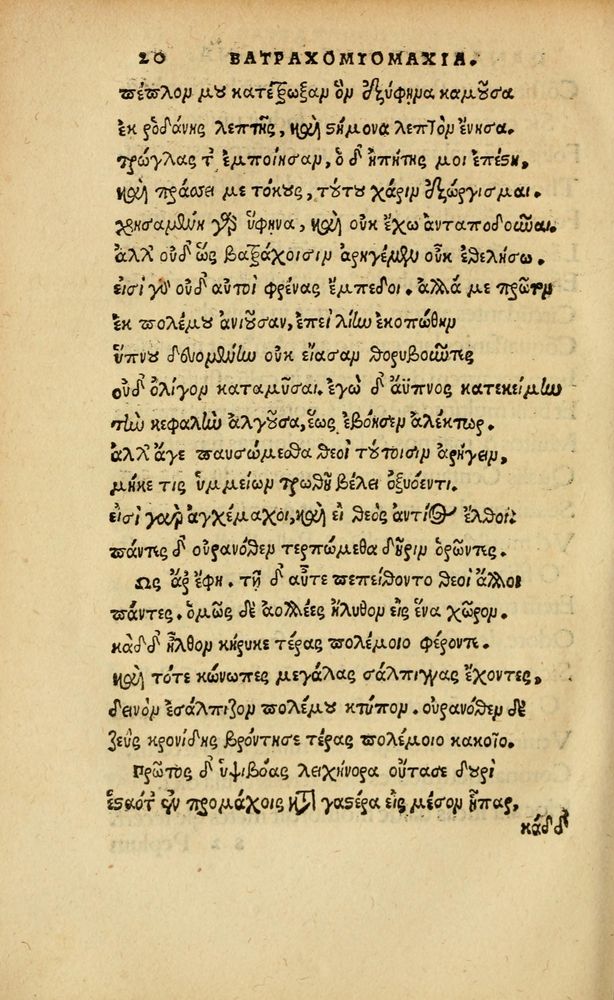 20 ΒΑΤΡΑΧΟΜΥΟΜΑΧΙΑ.
πέπλον μου κατέτρωξαν ὃν ἐξύφηνα καμοῦσα
ἐκ ῥοδάνης λεπτῆς, καὶ στήμονα λεπτὸν ἔνησα.
τρώγλας τ' ἐμποίησαν, ὁ δ' ἠπητής μοι ἐπέστη,
καὶ πράσσει με τόκους, τούτου χάριν ἐξώργισμαι.
χρησαμένη γὰρ ὕφηνα, καὶ οὐκ ἔχω ἀνταποδοῦσαι.
ἀλλ' οὐδ' ὣς βατράχοισιν ἀρηγέμεν οὐκ ἐθελήσω.
εἰσὶ γὰρ οὐδ' αὐτοὶ φρένας ἔμπεδοι. ἀλλά με πρώην
ἐκ πολέμου ἀνιοῦσαν, ἐπεὶ λίην ἐκοπώθην
ὕπνου δευομένην οὐκ εἴασαν θορυβοῦντες
οὐδ' ὀλίγον καταμῦσαι. ἐγὼ δ' ἄϋπνος κατεκείμην
τὴν κεφαλὴν ἀλγοῦσα, ἕως ἐβόησεν ἀλέκτωρ.
ἀλλ' ἄγε παυσώμεσθα θεοὶ τούτοισιν ἀρήγειν,
μήκε τις ὑμμείων τρωθῇ βέλει ὀξυόεντι.
εἰσὶ γὰρ ἀγχέμαχοι, καὶ εἰ θεὸς ἀντίος ἔλθοι.
πάντες δ' οὐρανόθεν τερπώμεθα δῆριν ὁρῶντες.
Ὣς ἄρ' ἔφη. τῇ δ' αὖτε πεπείθοντο θεοὶ ἄλλοι
πάντες. ὁμῶς δὲ ἀολλέες ἤλυθον εἰς ἕνα χῶρον.
κὰδ δ' ἦλθον κήρυκε τέρας πολέμοιο φέροντε.
καὶ τότε κώνωπες μεγάλας σάλπιγγας ἔχοντες,
δεινὸν ἐσάλπιζον πολέμου κτύπον. οὐρανόθεν δὲ
ζεὺς κρονίδης βρόντησε τέρας πολέμοιο κακοῖο.
Πρῶτος δ' ὑψιβόας λειχήνορα οὔτασε δουρὶ
ἑσταότ' ἐν προμάχοις κατὰ γαστέρα εἰς μέσον ἧπαρ,
κὰδ δ'